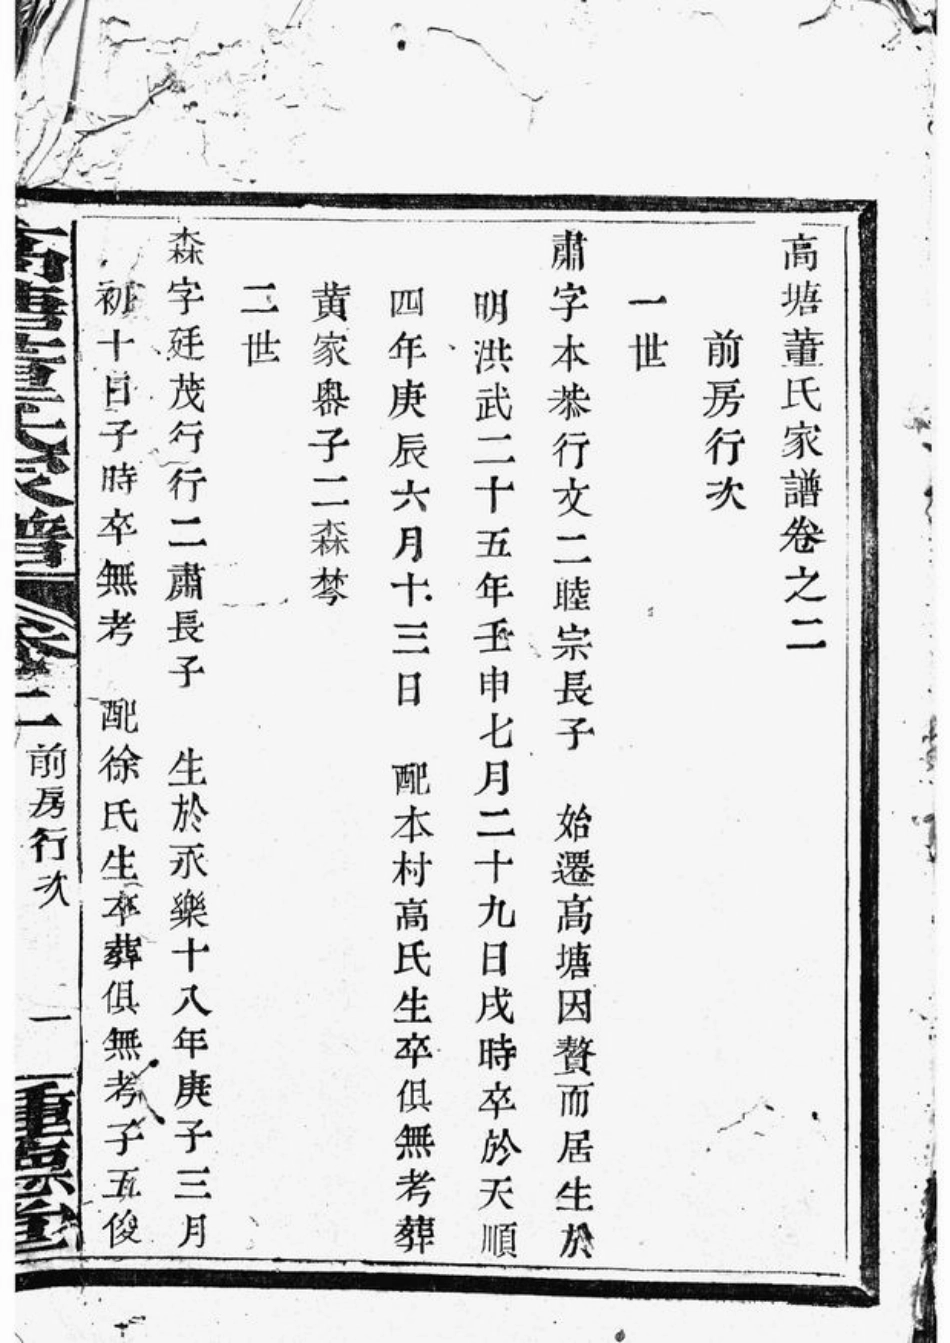 高塘董氏家譜卷之二
前房行次
一世
肅字本恭行文二睦宗長子 始遷高塘因贅而居生於
明洪武二十五年壬申七月二十九日戌時卒於天順
四年庚辰六月十三日 配本村高氏生卒俱無考葬
黄家嶴子二森棽
二世
森字廷茂行行二肅長子 生於永樂十八年庚子三月
初十日子時卒無考 配徐氏生卒葬俱無考子五俊
高塘董氏家譜 卷二 前房行次 一